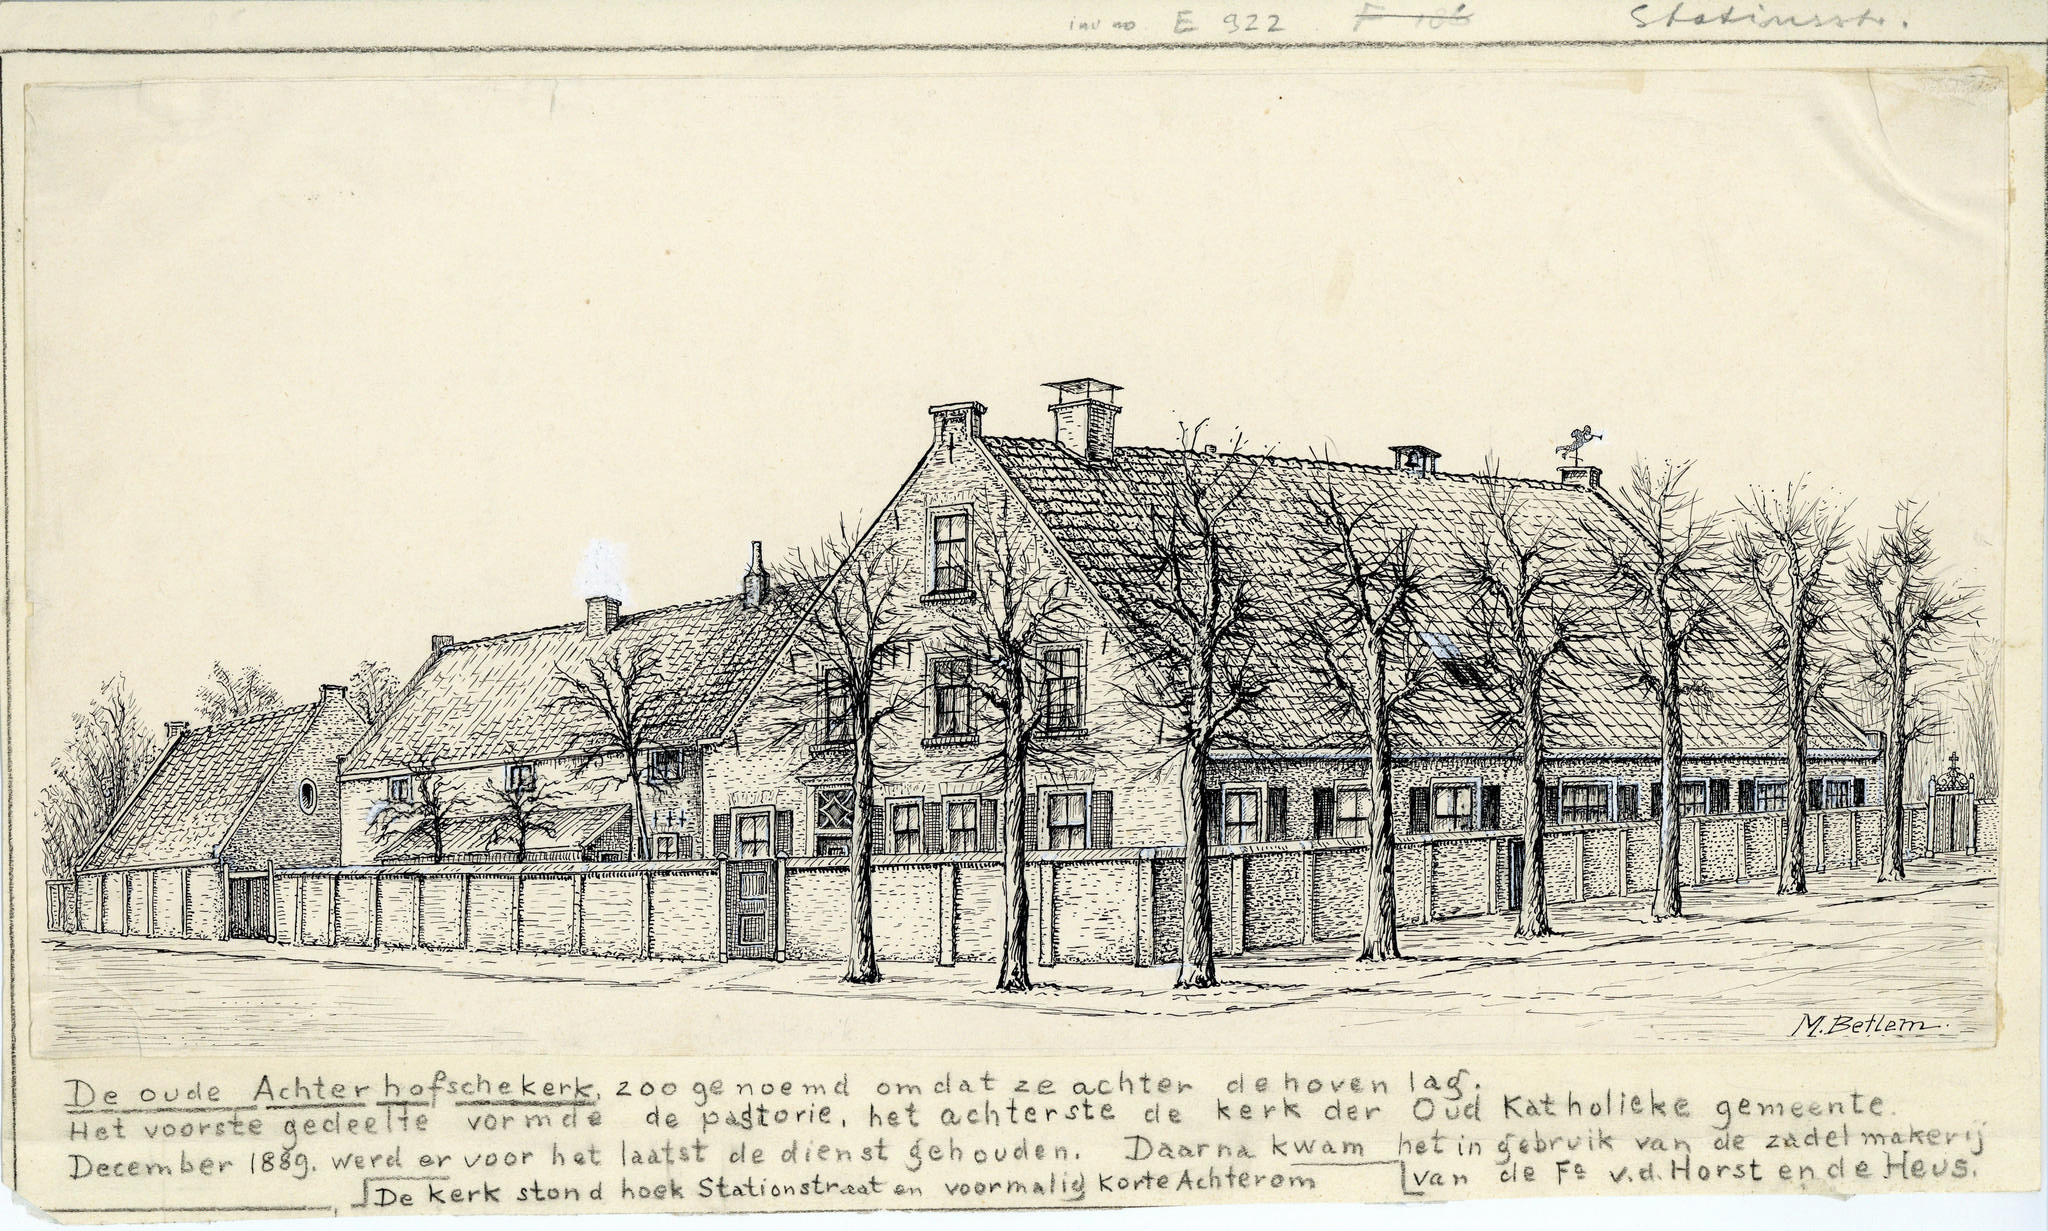 inv no E 922 F 106 Stationsstr.
M. Betlem.
De oude Achterhofschekerk, zoo genoemd omdat ze achter de hoven lag.
Het voorste gedeelte vormde de pastorie, het achterste de kerk der Oud Katholieke gemeente.
December 1889. werd er voor het laatst de dienst gehouden. Daarna kwam het in gebruik van de zadelmakerij
van de Fa v.d. Horst en de Heus.
De kerk stond hoek Stationstraat en voormalig Korte Achterom